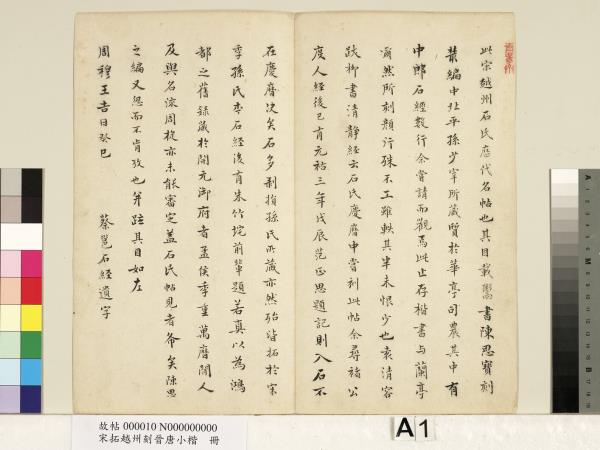 此宋越州石氏歷代名帖也其目載鬻書陳思寶刻
叢編中北平孫少宰所藏質於華亭司農其中有
中郎石經數行余嘗請而觀焉此止存楷書与蘭亭
爾然所刻頗行殊不工雖軼其半未恨少也袁清容
跋柳書清静經云石氏慶曆中嘗刻此帖余尋褚公
度人經後已有元祐三年戊辰范正思題記則入石不
在慶曆決矣石多剥損孫氏所藏亦然殆皆拓於宋
季孫氏本石經後有朱竹垞前輩題若真以為鴻
都之舊録藏於開元御府者孟侯季重萬曆間人
及與名流周旋亦未能審定蓋石氏帖見者希矣陳思
之編又忽而不肯攷也并跋其目如左
周穆王吉日癸巳
蔡邕石經遺字
A1
故帖 000010 N000000000
宋拓越州刻晉唐小楷 冊